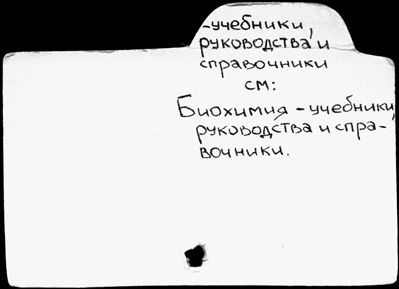 -учебники,
руководства и
справочники
см:
Биохимия - учебники,
руководства и спра-
вочники.